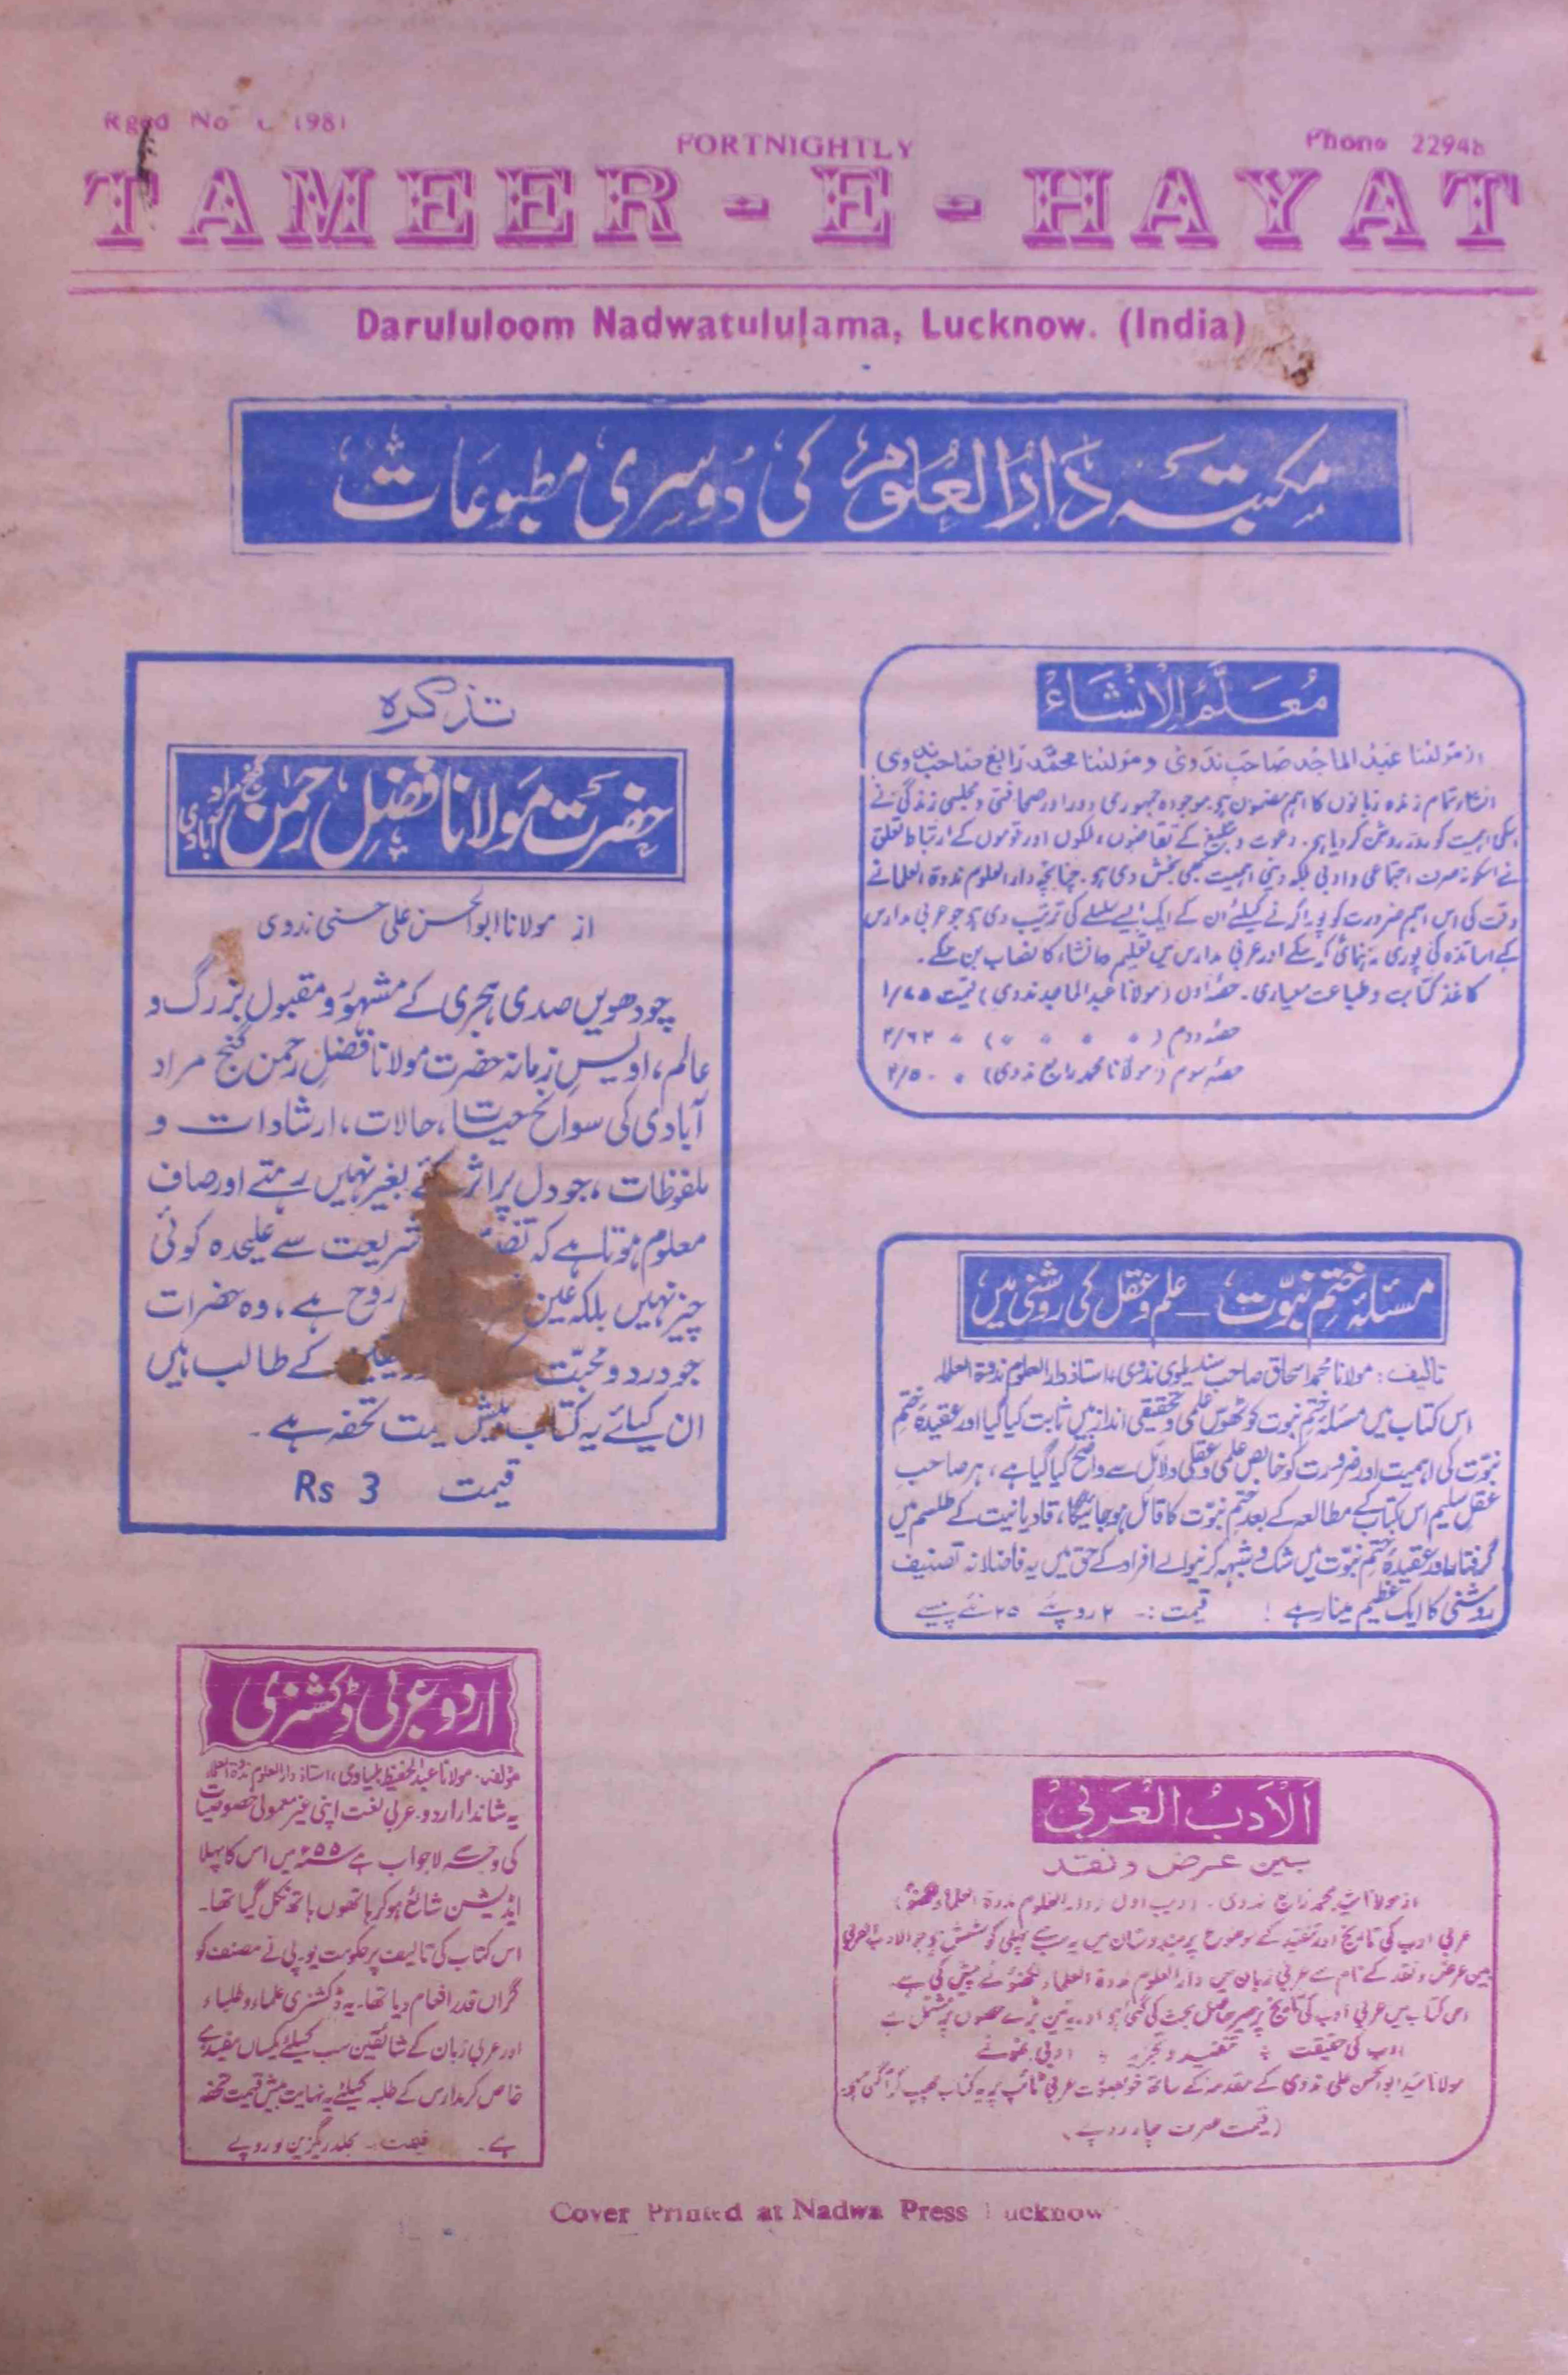 Rged No L 1981
FORTNIGHTLY
Phone 22948
TAMEER - E - HAYAT
Darululoom Nadwatululama, Lucknow. (India)
مکتبہ دَارُالعُلوم کی دُوسری مطبوعَات
مُعَلَّمُ الْاِنْشَاءْ
از مَولٰنا عَبدُ الماجد صَاحب نَدوی و مَولٰنا محمّد رَابع صَاحب نَدوی
انشاء تمام زندہ زبانوں کا اہم مضمون ہے، موجودہ جمہوری دور اور صحافتی و مجلسی زندگی نے
اسکی اہمیت کو روز روشن کر دیا ہے. دعوت و تبلیغ کے تقاضوں، ملکوں اور قوموں کے ارتباط و تعلق
نے اسکو نہ صرف اجتماعی و ادبی بلکہ دینی اہمیت بھی بخش دی ہے. چنانچہ دارالعلوم ندوۃ العلماء نے
وقت کی اس اہم ضرورت کو پورا کرنے کیلئے ان کے ایک ایسے سلسلے کی ترتیب دی ہے جو عربی مدارس
کے اساتذہ کی پوری رہنمائی کر سکے اور عربی مدارس میں تعلیم انشاء کا نصاب بن سکے.
کاغذ کتابت و طباعت معیاری. حصّہ اول (مولانا عبد الماجد ندوی) قیمت ۱/۷۵
حصّہ دوم ( ״ ״ ״ ״ ) ״ ۲/۶۲
حصّہ سوم (مولانا محمد رابع ندوی) ״ ۲/۵۰
تذکرہ
حضرت مَولانا فضلِ رحمٰن گنج مراد آبادی
از مولانا ابوالحسن علی حسنی ندوی
چودھویں صدی ہجری کے مشہور و مقبول بزرگ و
عالم، اویسِ زمانہ حضرت مولانا فضلِ رحمن گنج مراد
آبادی کی سوانح حیات، حالات، ارشادات و
ملفوظات، جو دل پر اثر کئے بغیر نہیں رہتے اور صاف
معلوم ہوتا ہے کہ شریعت سے علیحدہ کوئی
چیز نہیں بلکہ عین روح ہے، وہ حضرات
جو درد و محبّت کے طالب ہیں
ان کیلئے یہ کتاب بیش قیمت تحفہ ہے.
قیمت Rs 3
مسئلۂ ختمِ نبوّت ــ علم و عقل کی روشنی میں
تالیف: مولانا محمد اسحاق صاحب سندیلوی ندوی، استاذ دارالعلوم ندوۃ العلماء
اس کتاب میں مسئلہ ختم نبوت کو ٹھوس علمی و تحقیقی انداز میں ثابت کیا گیا اور عقیدۂ ختم
نبوّت کی اہمیت اور ضرورت کو خالص علمی و عقلی دلائل سے واضح کیا گیا ہے، ہر صاحب
عقلِ سلیم اس کتاب کے مطالعہ کے بعد ختمِ نبوّت کا قائل ہو جائیگا، قادیانیت کے طلسم میں
گرفتار اور عقیدۂ ختمِ نبوّت میں شک و شبہہ کرنیوالے افراد کے حق میں یہ فاضلانہ تصنیف
روشنی کا ایک عظیم مینار ہے ! قیمت :- ۲ روپئے ۲۵ نئے پیسے
اردو عربی ڈکشنری
مؤلفہ. مولانا عبدالحفیظ بلیاوی، استاذ دارالعلوم ندوۃ العلماء
یہ شاندار اردو. عربی لغت اپنی غیر معمولی خصوصیات
کی وجہ سے لاجواب ہے ۵۵ء میں اس کا پہلا
ایڈیشن شائع ہو کر ہاتھوں ہاتھ نکل گیا تھا.
اس کتاب کی تالیف پر حکومت یو. پی نے مصنف کو
گراں قدر انعام دیا تھا. یہ ڈکشنری علماء و طلباء
اور عربی زبان کے شائقین سب کیلئے یکساں مفید ہے
خاص کر مدارس کے طلبہ کیلئے یہ نہایت بیش قیمت تحفہ
ہے. قیمت:- مجلد ریگزین ۷ روپے
اَلْاَدَبُ الْعَرَبِیْ
بین عرض و نقد
از مولانا محمد رابع ندوی. (ادیب اول دارالعلوم ندوۃ العلماء لکھنؤ)
عربی ادب کی تاریخ اور تنقید کے موضوع پر ہندوستان میں یہ سب سے پہلی کوشش ہے جو الادب العربی
بین عرض و نقد کے نام سے عربی زبان میں دارالعلوم ندوۃ العلماء لکھنؤ نے پیش کی ہے
اس کتاب میں عربی ادب کی تاریخ پر سیر حاصل بحث کی گئی ہے اور یہ تین بڑے حصوں پر مشتمل ہے
ادب کی حقیقت ؛ تنقید و تجزیہ ؛ ادبی نمونے
مولانا سید ابوالحسن علی ندوی کے مقدمہ کے ساتھ خوبصورت عربی ٹائپ پر یہ کتاب چھپ کر آ گئی ہے
(قیمت صرف چار روپے)
Cover Printed at Nadwa Press Lucknow